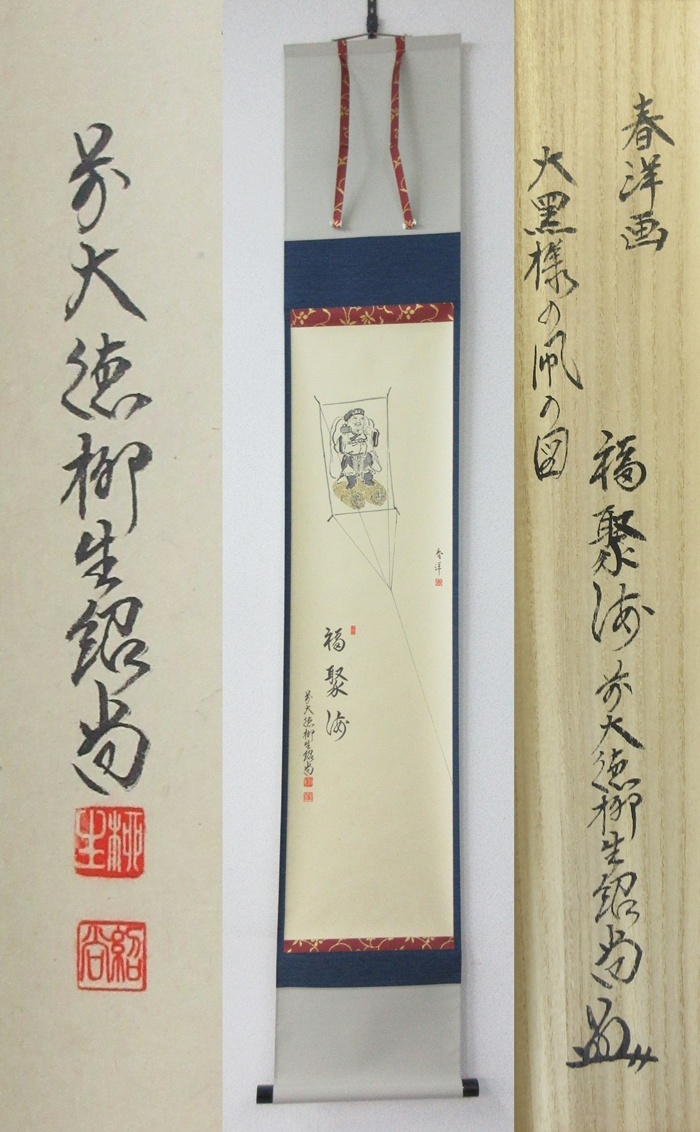 春洋画
大黒様の凧の図
福聚海 前大徳柳生紹尚
春洋
福聚海
前大徳柳生紹尚
前大徳柳生紹尚
柳生
紹尚